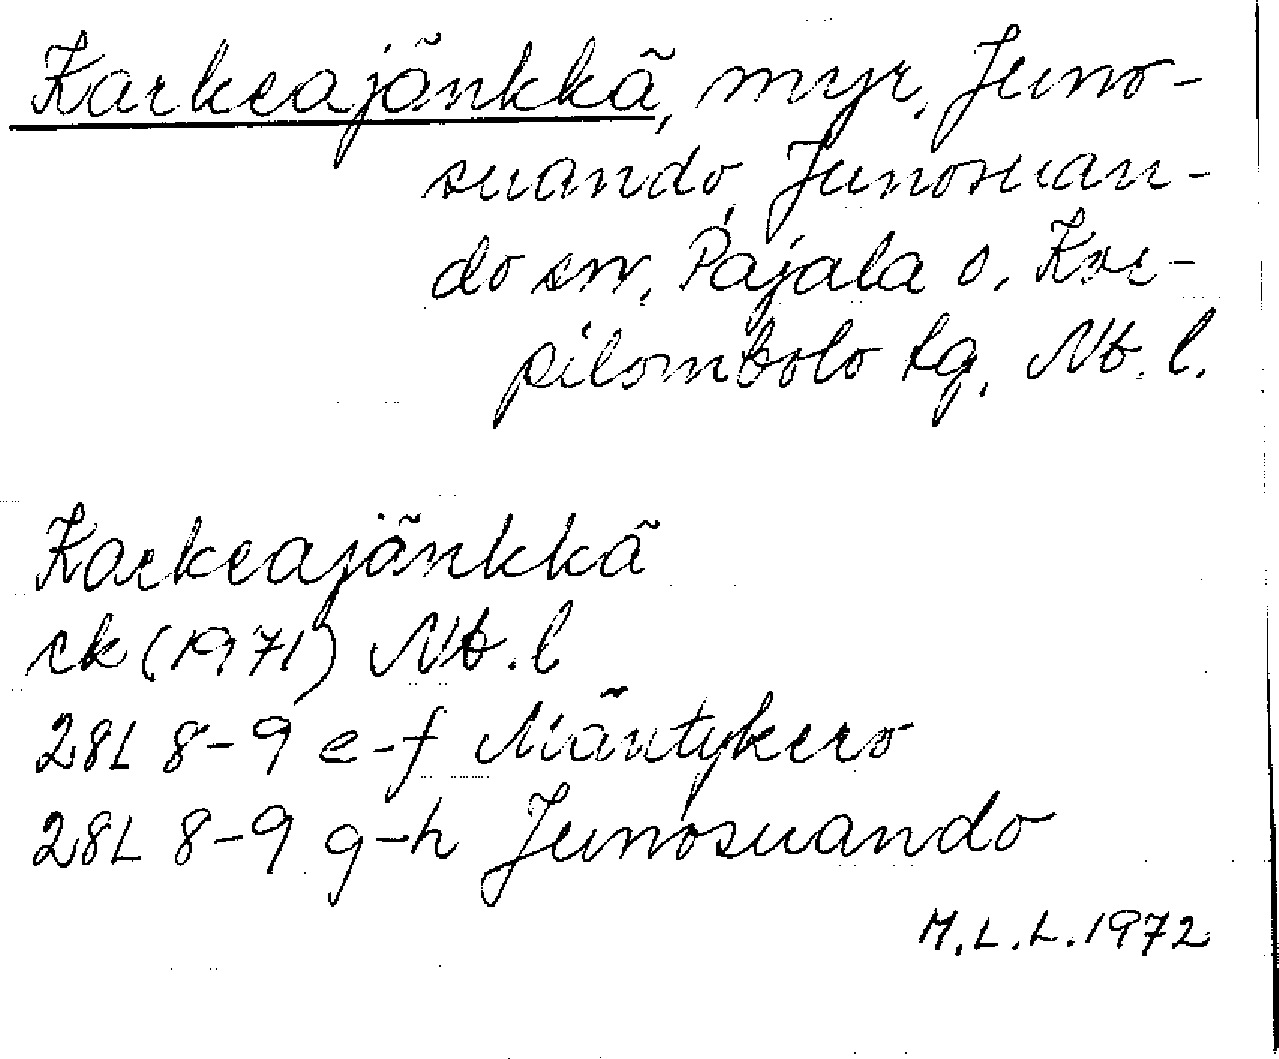 Karkeajänkkä, myr, Juno-
suando, Junosuan-
do sn, Pajala o. Kor-
pilombolo tg, Nb. l.
Karkeajänkkä
ek (1971) Nb. l
28L 8-9 e-f Mäntykero
28L 8-9 g-h Junosuando
M.L.L. 1972